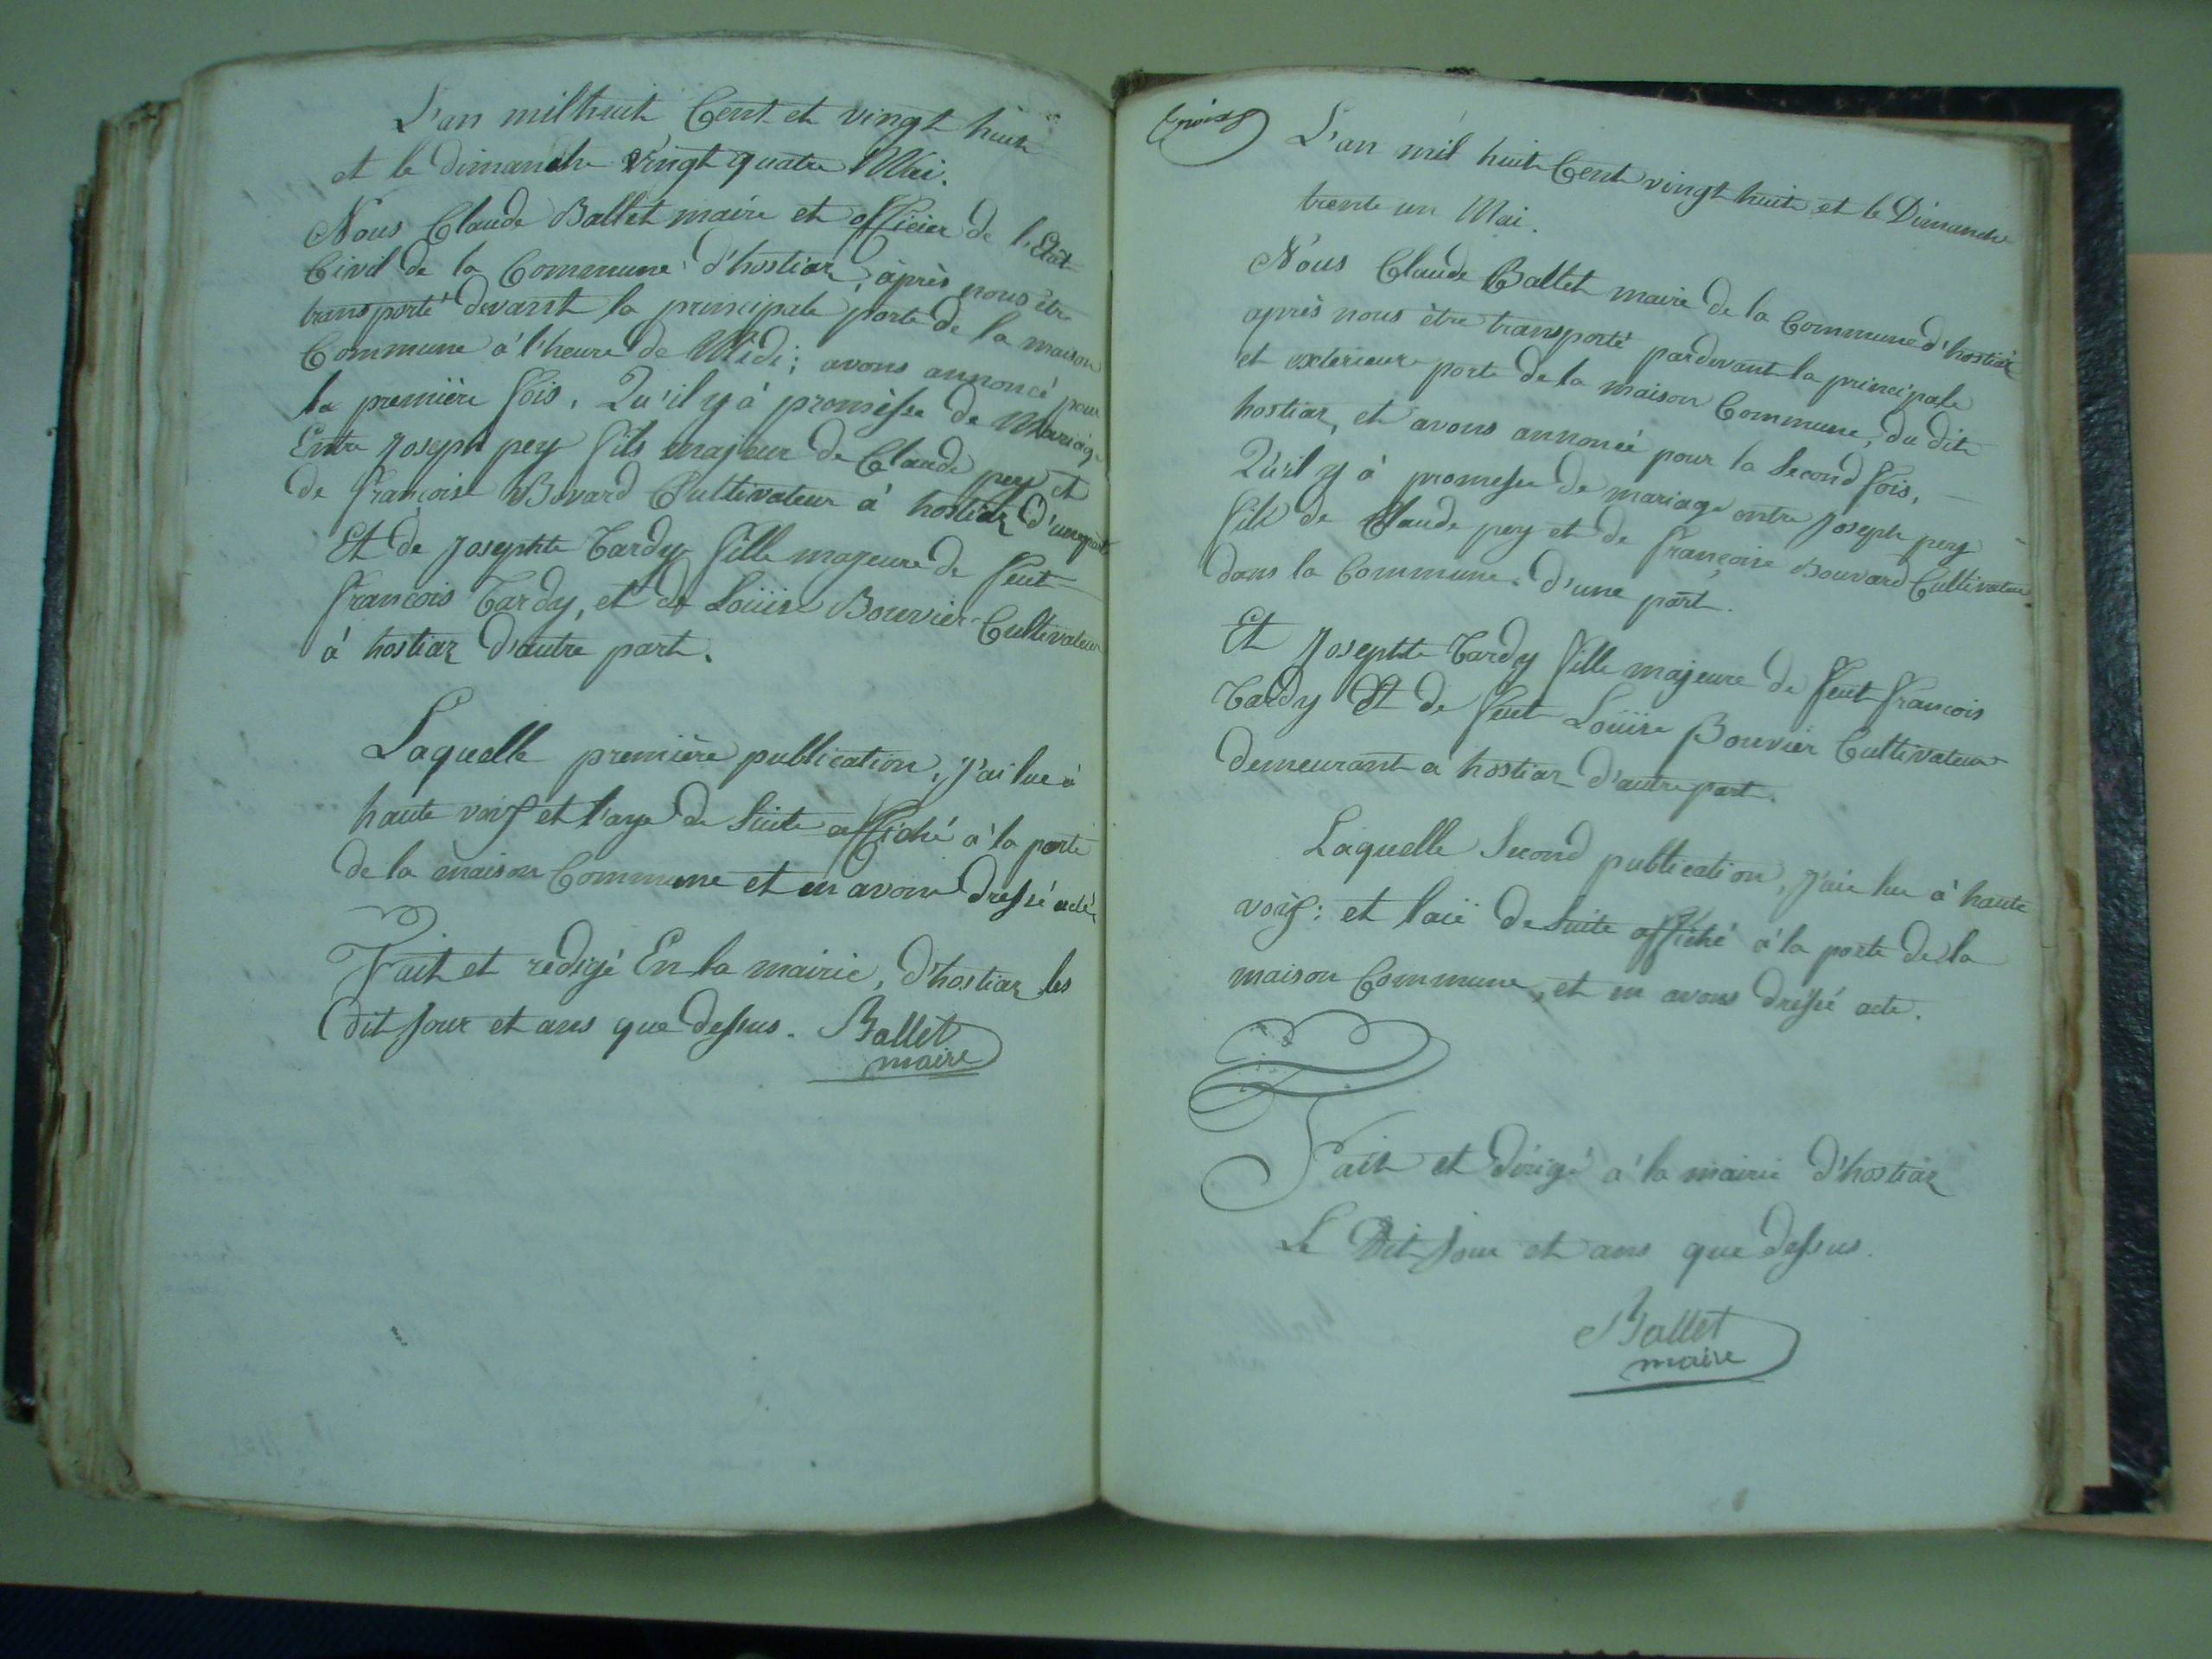 L'an mil huit Cent et vingt huit
et le dimanche vingt quatre Mai.
Nous Claude Ballet maire et officier de l'Etat
Civil de la Commune d'hostiaz, après nous être
transporté devant la principale porte de la maison
Commune à l'heure de Midi; avons annoncé pour
la première fois, Qu'il y à promesse de Mariage
Entre Joseph pey fils majeur de Claude pey et
de françoise Bovard Cultivateur à hostiaz d'une part
Et de Josephte Tardy fille majeure de feut
françois Tardy, et de Loüise Bouvier Cultivateur
à hostiaz d'autre part.
Laquelle première publication, j'ai lue à
haute voix et l'aye de suite affiché à la porte
de la maison Commune et en avons dressé acte,
Fait et redigé En la mairie, d'hostiaz les
dit jour et ans que dessus. Ballet
maire
L'an mil huit Cent vingt huit et le Dimanche
trente un Mai.
Nous Claude Ballet maire de la Commune d'hostiaz
après nous être transporté pardevant la principale
et exterieure porte de la maison Commune, du dit
hostiaz, et avons annoncé pour la Second fois,
Qu'il y à promesse de mariage entre Joseph pey
fils de Claude pey et de françoise Bouvard Cultivateur
dans la Commune. d'une part.
Et Josephte Tardy fille majeure de feut françois
Tardy Et de feut Loüise Bouvier Cultivateur
demeurant a hostiaz d'autre part.
Laquelle Second publication, j'ai lue à haute
voix; et l'aiï de suite affiché à la porte de la
maison Commune, et en avons dressé acte.
Fait et dirigé à la mairie d'hostiaz
Le Dit jour et ans que dessus.
Ballet
maire